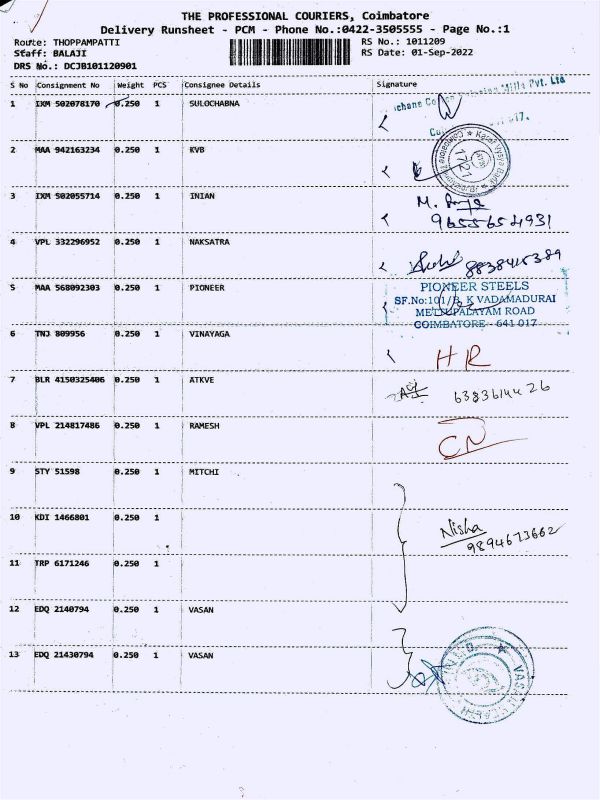 THE PROFESSIONAL COURIERS, Coimbatore
Delivery Runsheet - PCM - Phone No.:0422-3505555 - Page No.:1
Route: THOPPAMPATTI
RS No.: 1011209
Staff: BALAJI
RS Date: 01-Sep-2022
DRS No.: DCJB101120901
S No Consignment No Weight PCS Consignee Details Signature
Mills Pvt. Ltd
1 IXM 502078170 0.250 1 SULOCHABNA
2 MAA 942163234 0.250 1 KVB
Karur Vysya Bank
1721
3 IXM 502055714 0.250 1 INIAN
9655654931
4 VPL 332296952 0.250 1 NAKSATRA
8838415389
5 MAA 568092303 0.250 1 PIONEER
PIONEER STEELS
SF.No:101/B, K VADAMADURAI
METTUPALAYAM ROAD
COIMBATORE - 641 017
6 TNJ 809956 0.250 1 VINAYAGA
HR
7 BLR 4150325406 0.250 1 ATKVE
6383614426
8 VPL 214817486 0.250 1 RAMESH
CN
9 STY 51598 0.250 1 MITCHI
10 KDI 1466801 0.250 1
Nisha
9894673662
11 TRP 6171246 0.250 1
12 EDQ 2140794 0.250 1 VASAN
13 EDQ 21430794 0.250 1 VASAN
VASAN